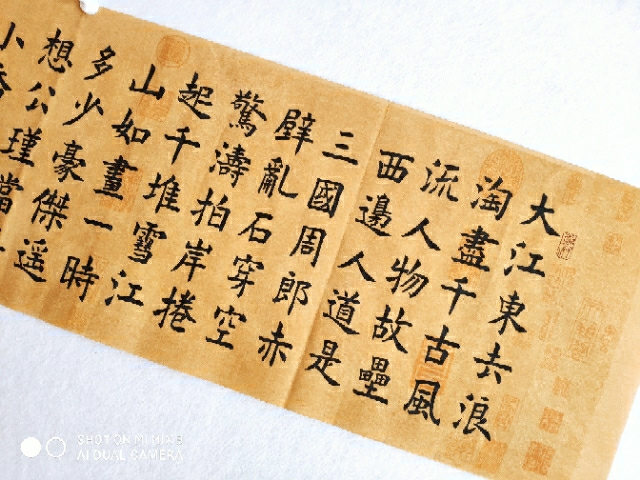 大江東去浪
淘盡千古風
流人物故壘
西邊人道是
三國周郎赤
壁亂石穿空
驚濤拍岸捲
起千堆雪江
山如畫一時
多少豪傑遥
想公瑾當
小
SHOT ON MI MIX2S
AI DUAL CAMERA